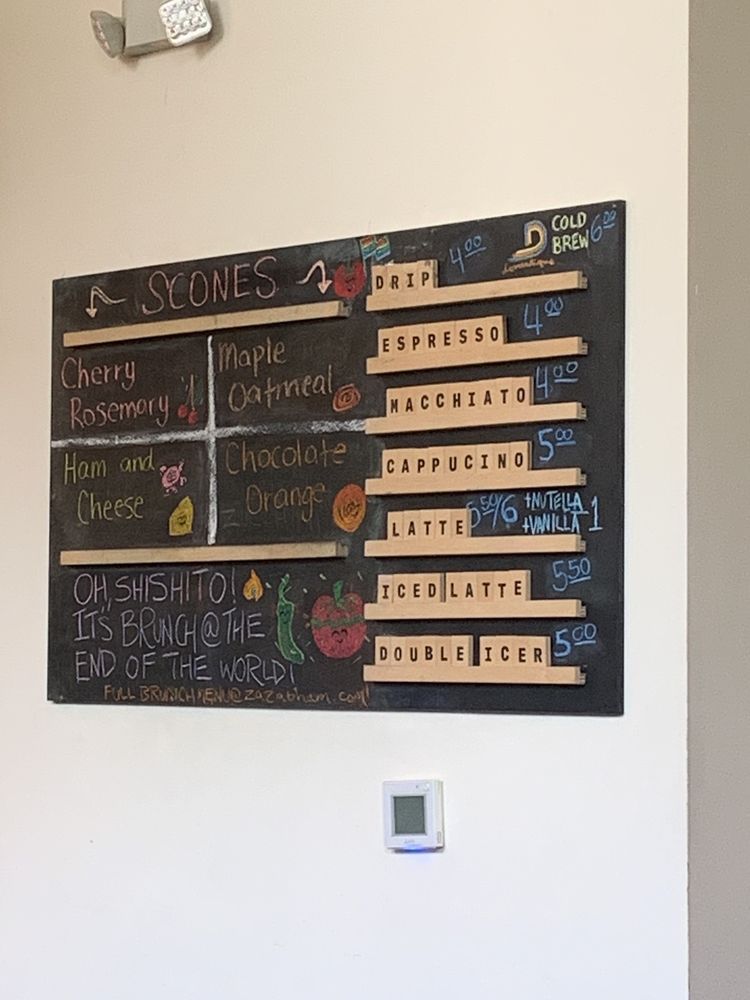 SCONES
Cherry
Rosemary
Maple
Oatmeal
Ham and
Cheese
Chocolate
Orange
OH, SHISHITO!
IT'S BRUNCH @ THE
END OF THE WORLD!
FULL BRUNCH MENU @ zazabham.com!
DRIP 4.00
D COLD
BREW 6.00
domestique
ESPRESSO 4.00
MACCHIATO 4.00
CAPPUCINO 5.00
LATTE 5.50/6 +NUTELLA
+VANILLA 1
ICED LATTE 5.50
DOUBLE ICER 5.00